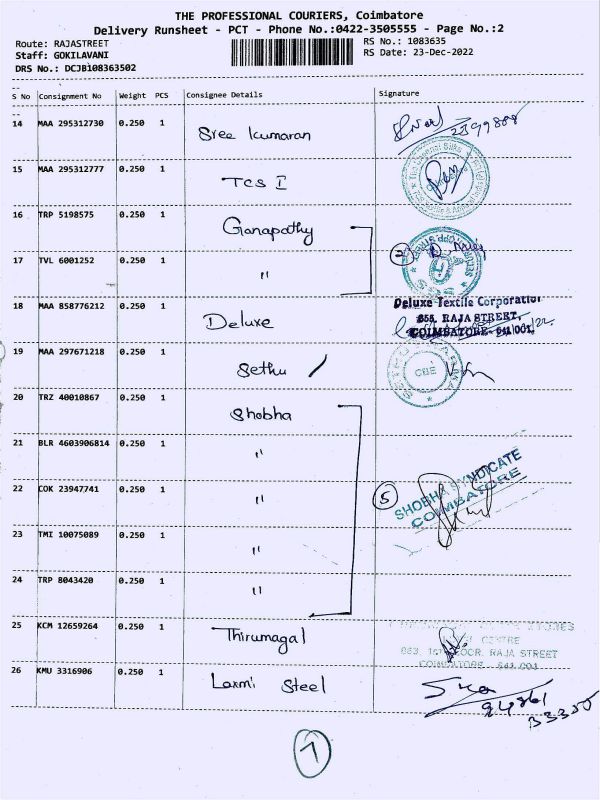 THE PROFESSIONAL COURIERS, Coimbatore
Delivery Runsheet - PCT - Phone No.:0422-3505555 - Page No.:2
Route: RAJASTREET RS No.: 1083635
Staff: GOKILAVANI RS Date: 23-Dec-2022
DRS No.: DCJB108363502
S No Consignment No Weight PCS Consignee Details Signature
14 MAA 295312730 0.250 1 Sree Kumaran
15 MAA 295312777 0.250 1 TCS I
16 TRP 5198575 0.250 1 Ganapathy
17 TVL 6001252 0.250 1 " 2
18 MAA 858776212 0.250 1 Deluxe
Deluxe Textile Corporation
855, RAJA STREET,
COIMBATORE- 641 001.
19 MAA 297671218 0.250 1 Sethu /
CBE
20 TRZ 40010867 0.250 1 Shobha
21 BLR 4603906814 0.250 1 "
22 COK 23947741 0.250 1 " 5
SHOBHA SYNDICATE
COIMBATORE
23 TMI 10075089 0.250 1 "
24 TRP 8043420 0.250 1 "
25 KCM 12659264 0.250 1 Thirumagal
CENTRE
RAJA STREET
COIMBATORE 641 001
26 KMU 3316906 0.250 1 Laxmi Steel
7